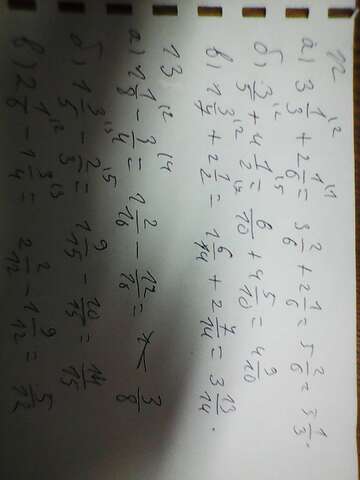 12
а) 3 1/3 + 2 1/6 = 3 2/6 + 2 1/6 = 5 2/6 = 5 1/3.
б) 3/5 + 4 1/2 = 6/10 + 4 5/10 = 4 9/10
в) 1 3/7 + 2 1/2 = 1 6/14 + 2 7/14 = 3 13/14.
13
а) 1 1/8 - 3/4 = 1 2/16 - 12/16 = 3/8
б) 1 3/5 - 2/3 = 1 9/15 - 10/15 = 14/15
в) 2 1/6 - 1 3/4 = 2 2/12 - 1 9/12 = 5/12